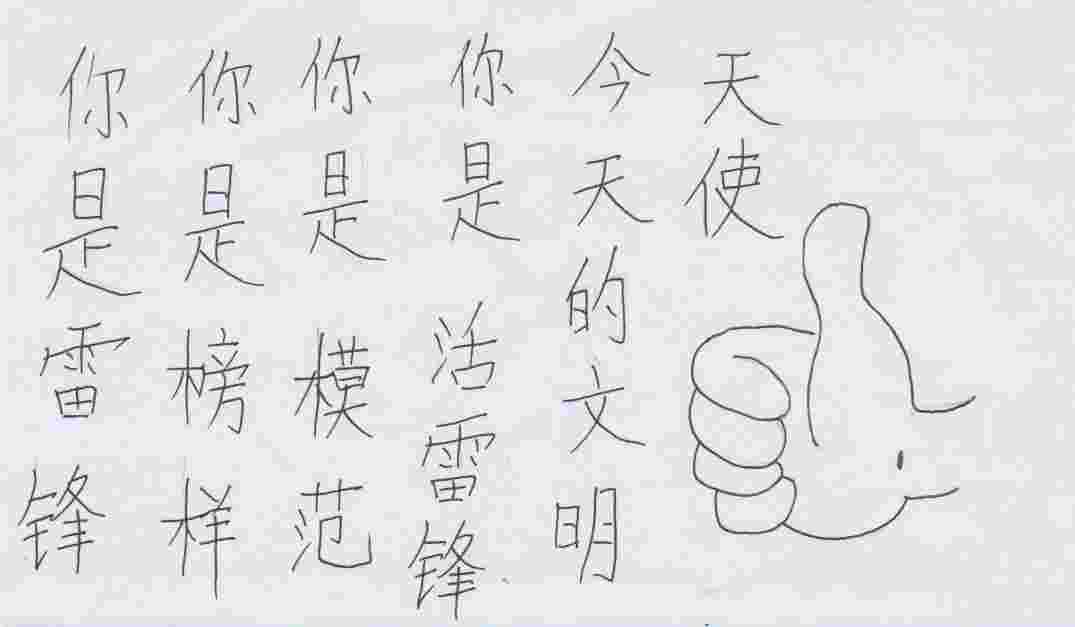 你是雷锋
你是榜样
你是模范
你是活雷锋
今天的文明
天使